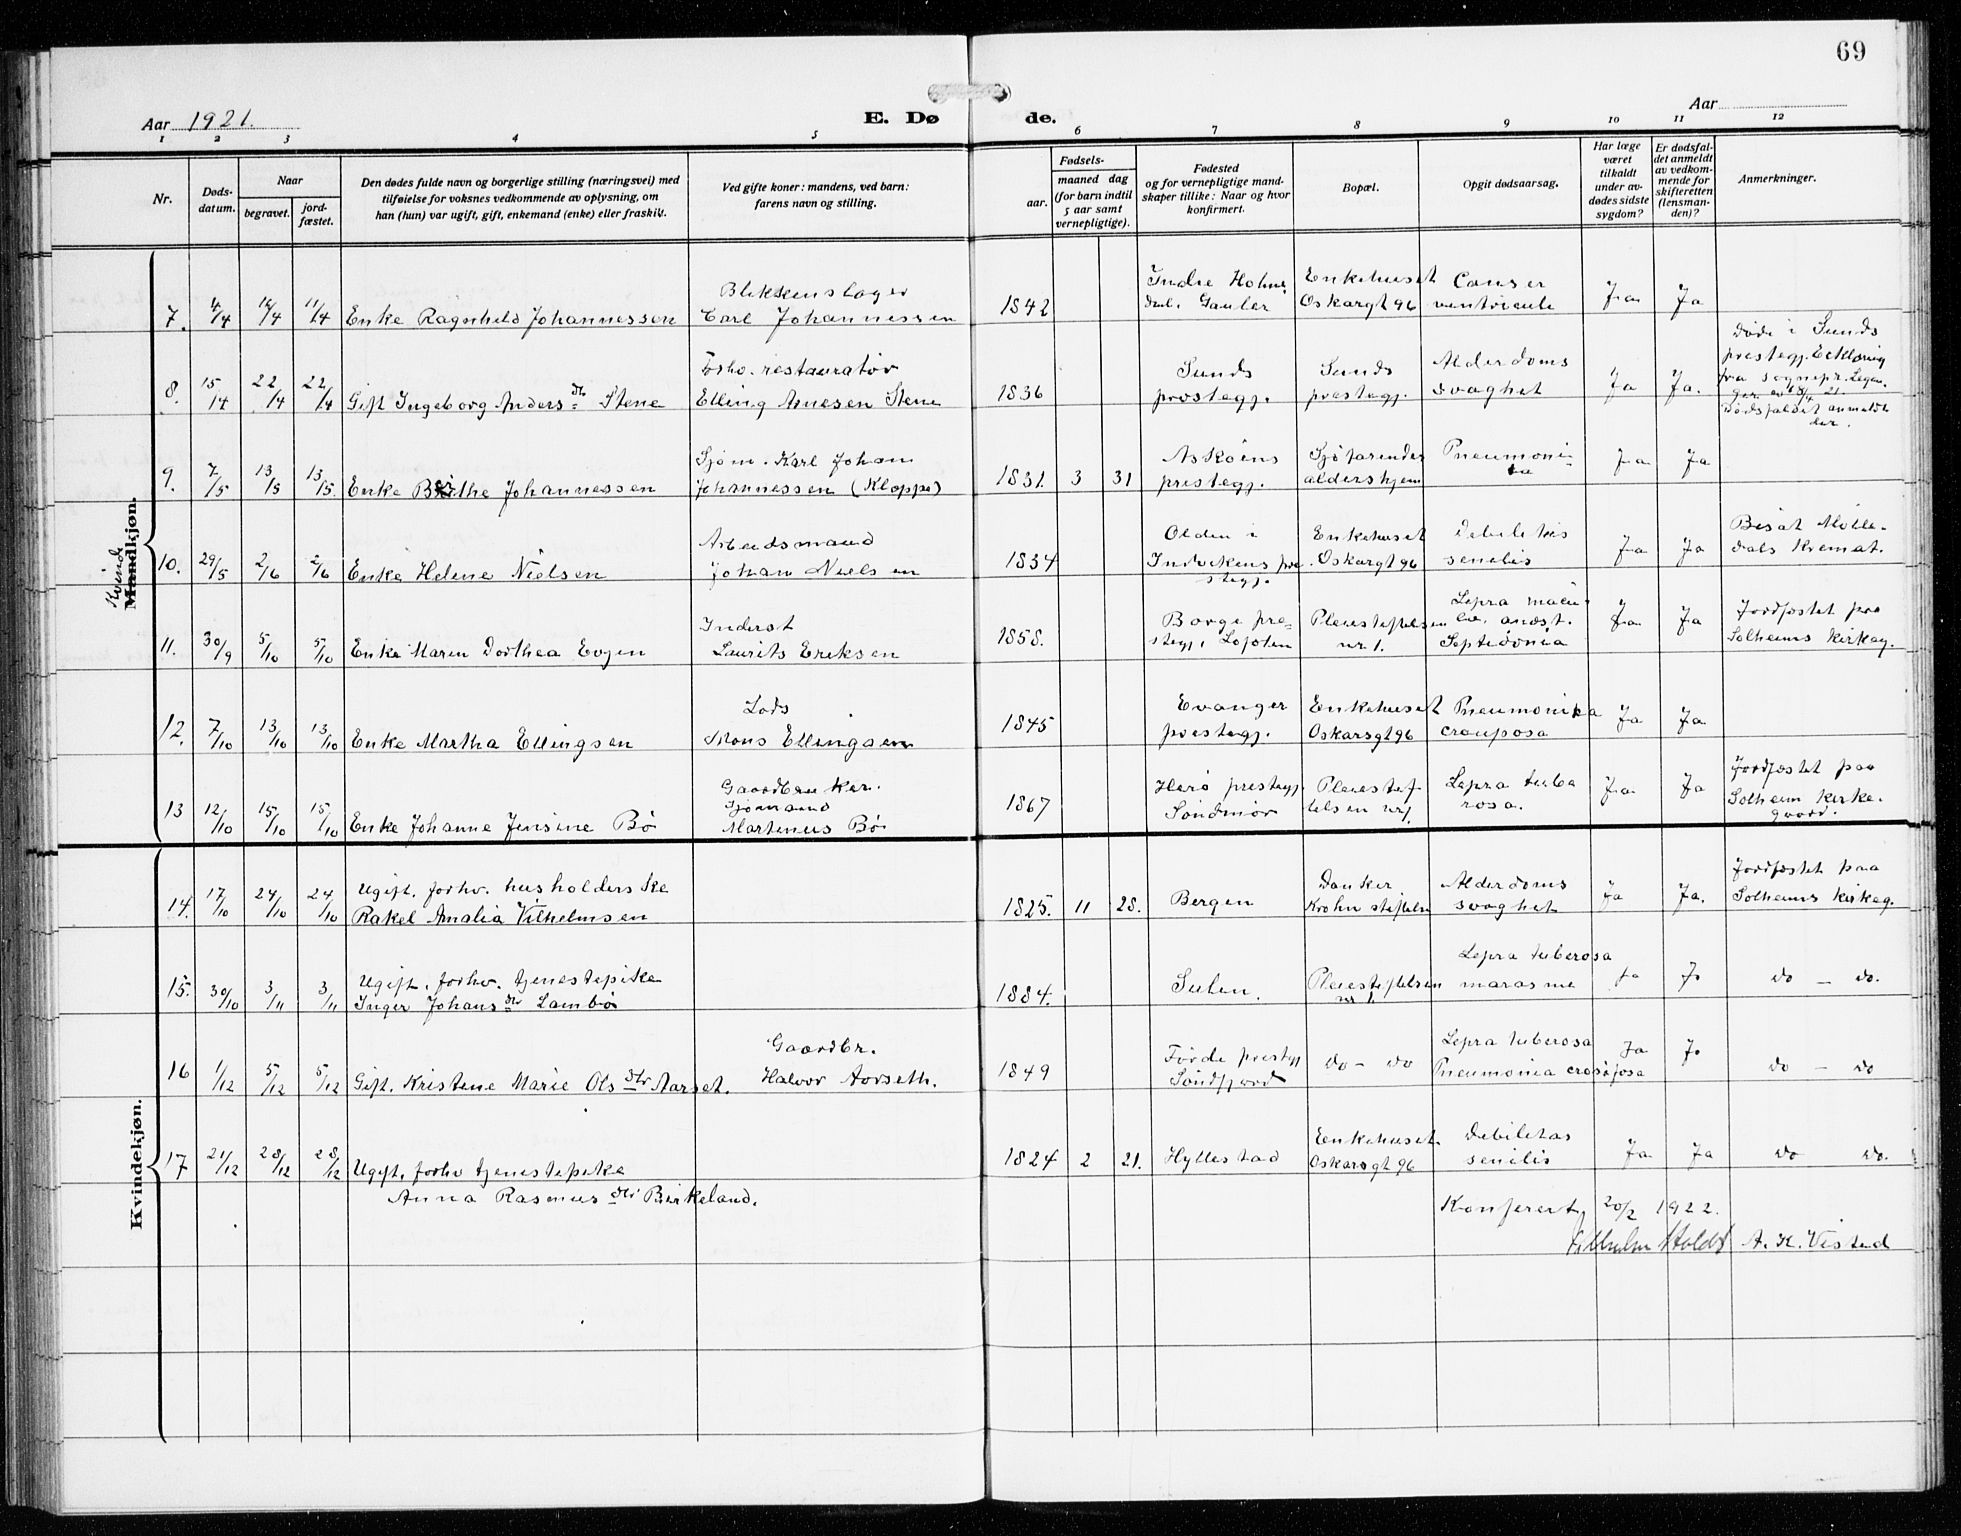 69
Aar 1921.
E. Døde.
Aar
1 2 3 4 5 6 7 8 9 10 11 12
Nr.
Døds-
datum.
Naar
begravet.
jord-
fæstet.
Den dødes fulde navn og borgerlige stilling (næringsvei) med
tilføielse for voksnes vedkommende av oplysning, om
han (hun) var ugift, gift, enkemand (enke) eller fraskilt.
Ved gifte koner: mandens, ved barn:
farens navn og stilling.
Fødsels-
aar.
maaned dag
(for barn indtil
5 aar samt
vernepligtige).
Fødested
og for vernepligtige mand-
skaper tillike: Naar og hvor
konfirmert.
Bopæl.
Opgit dødsaarsag.
Har læge
været
tilkaldt
under av-
dødes sidste
sygdom?
Er dødsfal-
det anmeldt
av vedkom-
mende for
skifteretten
(lensman-
den)?
Anmerkninger.
Kvinde
Mandkjøn.
7. 4/4 11/4 Enke Ragnhild Johannesson
Blikkenslager
Carl Johannessen
1842
Indre Holme
Gauler
Enkehuset
Oskarsgt 96
Canser
ventricule
Ja Ja
8. 15/4 22/4 22/4 Gift Ingeborg Andersdtr Stene
Forhv. restauratør
Elling Arnesen Stene
1836
Sunds
prestegj.
Sunds
prestegj.
Alderdoms
svaghet
Ja Ja.
Døde i Sunds
prestegj. Erklæring
fra sognepr.
Dødsfaldet anmeldt
der.
9. 7/5 13/5 13/5 Enke Berthe Johannessen
Sjøm. Karl Johan
Johannessen (Kloppe)
1831. 3 31
Askøens
prestegj.
Sjøfarendes
aldershjem
Pneumoni-
Ja Ja
10. 29/5 2/6 2/6 Enke Helene Nielsen
Arbeidsmand
Johan Nielsen
1834
Olden i
Indvikens pre
stegj.
Enkehuset
Oskarsgt 96
Debilitas
senilis
Ja Ja
Bisat Mølle-
dals Kremat.
11. 30/9 5/10 5/10 Enke Maren Dorthea Evjen
Inderst
Laurits Eriksen
1858.
Borge pre-
stegj. Lofoten
Pleiestiftelsen
nr 1.
Lepra macu-
lo. anæst.
Ja Ja
Jordfæstet paa
Solheims kirkeg.
12. 7/10 13/10 13/10 Enke Martha Ellingsen
Lods
Mons Ellingsen
1845
Evanger
prestegj.
Enkehuset
Oskarsgt 96
Pneumonia
crouposa
Ja Ja
13 12/10 15/10 15/10 Enke Johanne Jensine Bø
Gaardbruker.
Sjømand
Martinus Bø
1867
Herø prestegj
Søndmør
Pleiestif-
telsen nr 1.
Lepra tube
rosa.
Ja Ja
Jordfæstet paa
Solheim kirke.
gaard.
Kvindekjøn.
14. 17/10 24/10 24/10 Ugift. forhv. husholderske
Rakel Amalia Vilhelmsen
1825. 11 28.
Bergen
Danker
Krohn stiftelse
Alderdoms
svaghet
Ja Ja.
Jordfæstet paa
Solheims kirkeg.
15. 30/10 3/11 3/11 Ugift. forhv. tjenestepike
Inger Johansdtr Lambø
1884.
Sulen.
Pleiestiftelsen
nr 1
Lepra tuberosa
marasme
Ja Ja
do – do.
16 1/12 5/12 5/12 Gift. Kristene Marie Olsdtr Aarset.
Gaardbr.
Halvor Aarseth.
1849
Førde prestgj
Søndfjord
do – do
Lepra tuberosa
Pneumonia crouposa
Ja Ja
do – do
17 21/12 28/12 28/12 Ugift. forhv tjenestepike
Anna Rasmusdtr Birkeland.
1824 2 21.
Hyllestad
Enkehuset
Oskarsgt 96
Debilitas
senilis
Ja Ja
do do.
Konferert, 20/2 1922.
Vilhelm Holdt A. K. Vistad